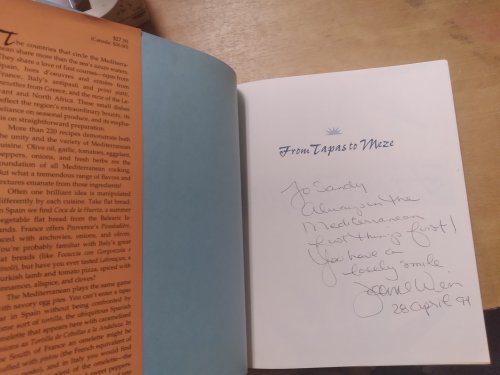 $27.50
(Canada: $36.00)
The countries that circle the Mediterra-
ean share more than the sea's azure waters.
They share a love of first courses—tapas from
Spain, hors d'oeuvres and entrées from
France, Italy's antipasti and primi piatti,
mezethes from Greece, and meze of the Le-
vant and North Africa. These small dishes
reflect the region's extraordinary bounty, its
reliance on seasonal produce, and its empha-
sis on straightforward preparation.
More than 220 recipes demonstrate both
the unity and the variety of Mediterranean
cuisine. Olive oil, garlic, tomatoes, eggplant,
peppers, onions, and fresh herbs are the
foundation of all Mediterranean cooking.
But what a tremendous range of flavors and
textures emanate from those ingredients!
Often one basic idea is manipulated
differently by each cuisine. Take flat bread.
In Spain we find Coca de la Huerta, a summer
vegetable flat bread from the Balearic Is-
lands. France offers Provence's Pissaladière,
laced with anchovies, onions, and olives.
You're probably familiar with Italy's great
flat breads (like Focaccia con Gorgonzola e
), but have you ever tasted Lahmaçun, a
Turkish lamb and tomato pizza, spiced with
cinnamon, allspice, and cloves?
The Mediterranean plays the same game
with savory egg pies. You can't enter a tapas
bar in Spain without being confronted by
some sort of tortilla, the ubiquitous Spanish
omelette that appears here with caramelized
onions as Tortilla de Cebollas a la Andaluza. In
the South of France an omelette might be
stuffed with pistou (the French equivalent of
pesto), and in Italy you would find
equivalent of the omelette—the
sweet peppers
From Tapas to Meze
To Sandy
Always in the
Mediterranean
first things first!
You have a
lovely smile.
Joanne Weir
28 april 94